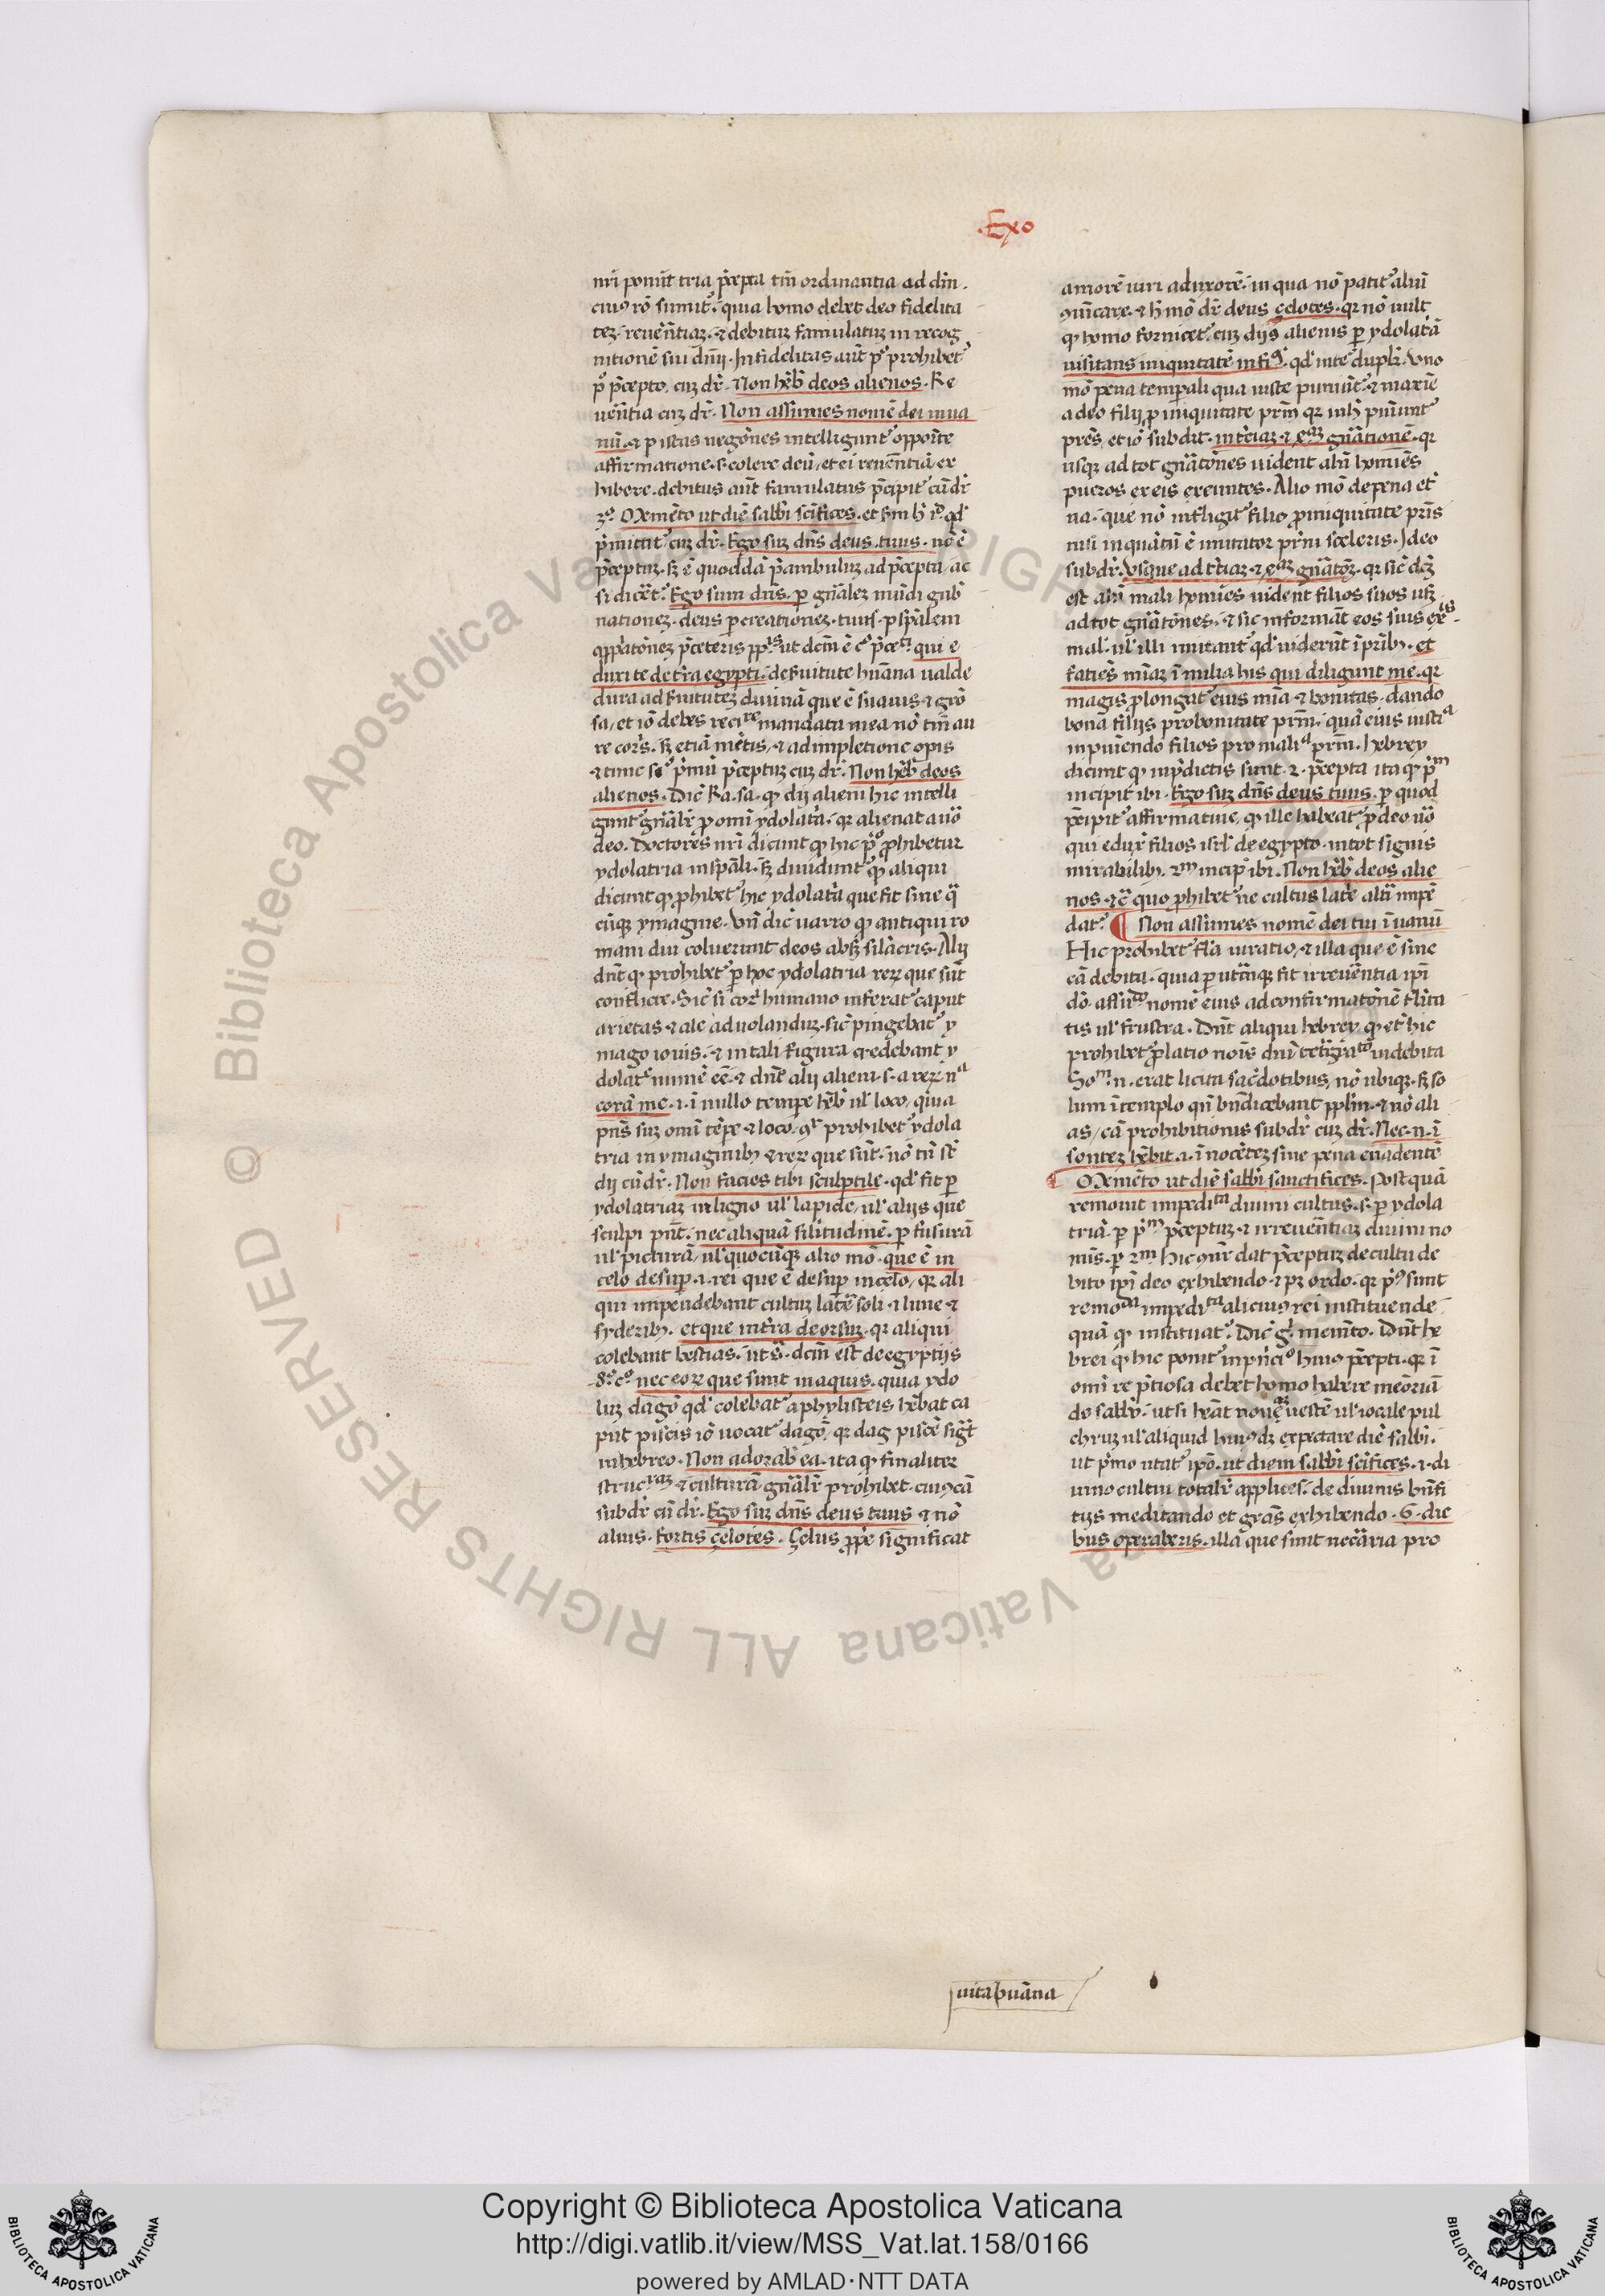 .Exo
nr̄i ponūt tria p̄cepta tm̄ ordinantia ad dm̄.
cuiꝰ rō sumit᷑. quia homo debet deo fidelita
teꝫ. reuēntiaꝫ. ⁊ debituꝫ famulatuꝫ in recog
nitionē sui dn̄ij. Infidelitas aūt pº prohibet᷑
pº p̄cepto. cuꝫ dr̄. Non hēb̄ deos alienos. Re
uēntia cuꝫ dr̄. Non assūmes nomē dei in ua
nū. ⁊ ꝑ istas negōnes intelligunt᷑ opposite
affirmatione. s. colere deū. et ei reuēntiā ex
hibere. debitus aūt famulatus p̄cipit᷑ cū dr̄
3º. Memēto ut diē sabb̄i sc̄ifices. et
p̄mittit᷑ cuꝫ dr̄. Ego suꝫ dn̄s deus tuus. nō ē
p̄ceptuꝫ. sꝫ ē quoddā p̄ambuluꝫ ad p̄cepta. ac
si dicēt᷑. Ego sum dn̄s. ꝑ gn̄aleꝫ mūdi gub̄
nationeꝫ. deus ꝑ creationeꝫ. tuus. ꝑ sp̄alem
qui e
duxi te de tr̄a egypti. de ẜuitute hūana ualde
dura ad ẜuituteꝫ diuinā que ē suauis ⁊ grō
sa. et iō debes mandata mea nō tm̄ au
re corꝑis. sꝫ etiā mētis. ⁊ ad impletionē opis
⁊ tunc p̄mū p̄ceptuꝫ cuꝫ dr̄. Non hēb̄ deos
alienos. Dic̄ Ra. sa. ꝙ dij alieni hic intelli
gunt᷑ gn̄alr̄ ꝓ omī ydolatā. qꝛ alienat a uō
deo. Doctores nr̄i dicunt ꝙ hic pº ꝓhibetur
ydolatria in sp̄ali. sꝫ diuidunt᷑ ꝙ aliqui
dicunt ꝙ ꝓhibet᷑ hic ydolatā que fit sine qͣ
cūqꝫ ymagine. Vn̄ dic̄ uarro ꝙ antiqui ro
mani diu coluerunt deos absqꝫ silacris. Alij
dn̄t ꝙ prohibet᷑ ꝑ hoc ydolatria reꝝ que sūt
conflicte. Sic̄ si corꝑ humano inferat᷑ caput
arietas ⁊ ale ad uolanduꝫ. sic̄ pingebat᷑ y
mago iouis. ⁊ in tali figura credebant y
dolat᷑ numē eē. ⁊ dn̄r alij alieni. s. a reꝝ nͣ
corā me. i. ī nullo tempe hēb̄ ul᷑ loco. quia
pn̄s suꝫ omī tēpe ⁊ loco. prohibet᷑ ydola
tria in ymaginibꝫ ⁊ reꝝ que sūt. nō tn̄ st̄
dij cū dr̄. Non facies tibi sculptile. qd᷑ fit ꝑ
ydolatriaꝫ in ligno ul᷑ lapide. ul᷑ alijs que
sculpi pn̄t. nec aliquā silitudinē. ꝑ fusurā
ul᷑ picturā. ul᷑ quocūqꝫ alio mō. que ē in
celo desuꝑ. i. rei que ē desuꝑ in celo. qꝛ ali
qui impendebant cultuꝫ latē soli ⁊ lune ⁊
syderibꝫ. et que in tr̄a deorsuꝫ. qꝛ aliqui
colebant bestias. ut sͣ. dcm̄ est de egyptijs
8º. cº. nec eoꝝ que sunt in aquis. quia ydo
luꝫ dagō qd᷑ colebat᷑ a phylisteis hēbat ca
put piscis iō uocat᷑ dagō. qꝛ dag piscē sigͣt
in hebreo. Non adorab̄ ea. ita ꝙ finaliter
⁊ culturā gn̄alr̄ prohibet. cuiꝰ cā
subdr̄ cū dr̄. Ego suꝫ dn̄s deus tuus ⁊ nō
alius. Fortis çelotes. Çelus ꝓpe significat
amorē uiri ad uxorē. in qua nō patit᷑ aliū
ꝯuīcare. ⁊ h mō dr̄ deus çelotes. qꝛ nō uult
ꝙ homo fornicet᷑ cuꝫ dijs alienis ꝑ ydolatā
uisitans iniquitatē in fi. qd᷑ inte᷑ duplr̄. Vno
mō pena tempali qua iuste puniūt᷑ ⁊ maxīe
a deo filij ꝓ iniquitate prm̄ qꝛ in hꝭ puniunt᷑
prēs. et iō subdit. in t̄ciaꝫ ⁊ 4aꝫ gnātionē. qꝛ
usqꝫ ad tot gnātōnes uident alii homīes
pueros ex eis exeuntes. Alio mō de pena et᷑
na. que nō infligit᷑ filio ꝓ iniquitate pr̄is
nisi inquātū ē imitator pr̄ni sceleris. Ideo
subdr̄. Usque ad t̄ciaꝫ. ⁊ 4aꝫ gnātoꝫ. qꝛ sic̄ dcꝫ
est alii mali homīes uident filios suos usqꝫ
ad tot gnātōnes. ⁊ sic informāt eos suis ex̄is
mal. ul᷑ illi imitant᷑ qd᷑ uiderūt ī pr̄ibꝫ. et
faciēs mīaꝫ ī milia his qui diligunt me. qꝛ
magis ꝓlongat᷑ eius mīa ⁊ bonitas. dando
bona filijs pro bonitate prm̄. quā eius iustiͣ
in puniendo filios pro maliͣ prm̄. hebrey
dicunt ꝙ in p̄dictis sunt. 2. p̄cepta ita ꝙ pm̄
incipit ibi. Ego suꝫ dn̄s deus tuus. ꝑ quod
p̄cipit᷑ affirmatiue. ꝙ ille habeat᷑ ꝓ deo uō
qui eduxit filios isrl᷑ de egypto. in tot signis
mirabilibꝫ. 2m incip̄ ibi. Non hēb̄ deos alie
nos ⁊c̄ quo ꝓhibet᷑ ne cultus latē altī impē
dat᷑. ¶ Non assūmes nomē dei tui ī uanū
Hic prohibet᷑ fla iuratio. ⁊ illa que ē sine
cā debita. quia ꝑ utrāqꝫ fit irreuēntia ip̄i
dō. nomē eius ad confirmatōnē flita
tis ul᷑ frustra. Dn̄t aliqui hebrey ꝙ et᷑ hic
prohibet᷑ ꝓlatio nois dn̄i indebita
.n. erat licita sac̄dotibus. nō ubiqꝫ. sꝫ so
lum ī templo qn̄ bn̄dicebant pplm̄. ⁊ nō ali
as. cā prohibitionis subdr̄ cuꝫ dr̄. Nec. n. ī
sonteꝫ hēbit. i. ī nocēteꝫ sine pena euadentē
Memēto ut diē sabb̄i sanctifices. Postquā
remouit impeditͣ diuini cultus. s. ꝑ ydola
triā. ꝑ pm p̄ceptuꝫ. ⁊ irreuēntiaꝫ diuini no
mīs. ꝑ 2m. hic dat p̄ceptuꝫ de cultu de
bito ip̄i deo exhibendo. ⁊ pꝫ ordo. qꝛ pº sunt
remoͣ impeditͣ alicuiꝰ rei instituende
quā ꝙ instituat᷑. Dic̄ g᷑. memēto. Dn̄t he
brei ꝙ hic ponit᷑ in p̄nciº huiꝰ p̄cepti. qꝛ ī
omī re p̄tiosa debet homo habere meōriā
de sabbº. ut si heāt uestē ul᷑ iocale pul
chruꝫ ul᷑ aliquid huiꝰdꝫ expectare diē sabb̄i.
ut p̄mo utat᷑ ip̄o. ut diem sabb̄i sc̄ifices. i. di
uino cultui totalr̄ applices. de diuinis bn̄fi
tijs meditando et grās exhibendo. 6. die
bus operaberis. illa que sunt necāria pro
uita huāna
Copyright © Biblioteca Apostolica Vaticana
http://digi.vatlib.it/view/MSS_Vat.lat.158/0166
powered by AMLAD·NTT DATA
© Biblioteca Apostolica Vaticana ALL RIGHTS RESERVED
BIBLIOTECA APOSTOLICA VATICANA
BIBLIOTECA APOSTOLICA VATICANA